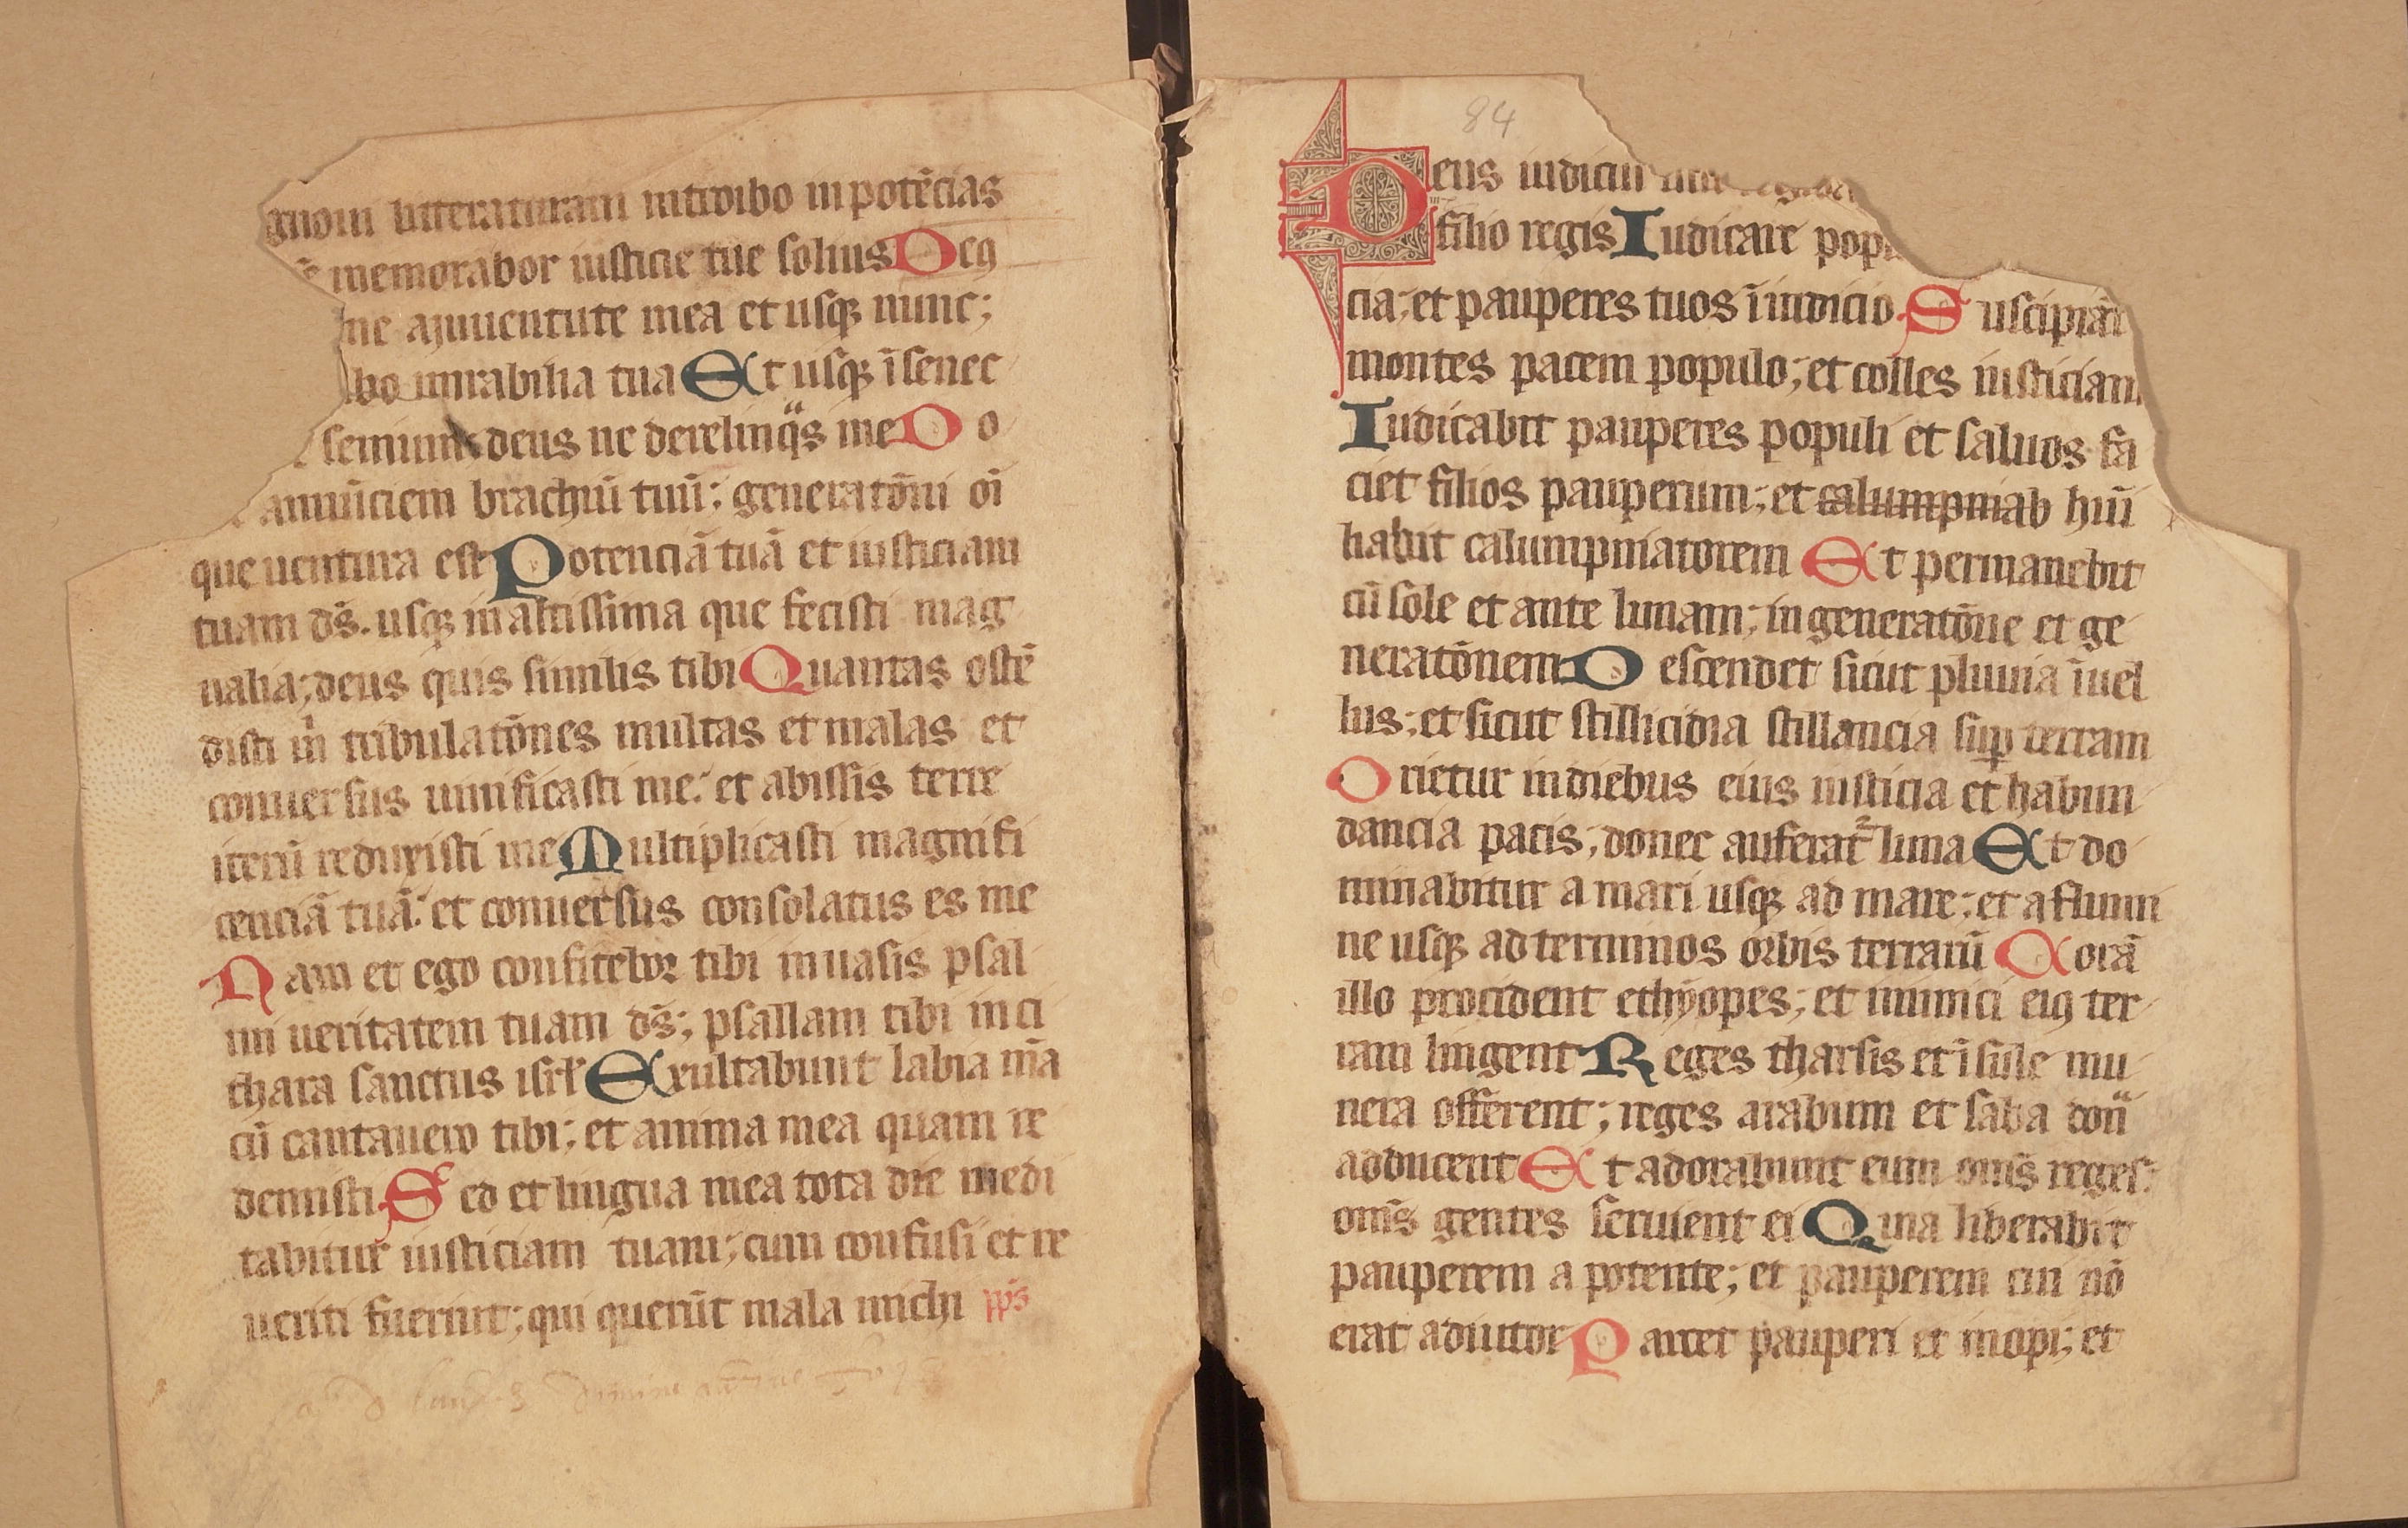 gnoui litteraturam introibo in potẽcias
memorabor iusticie tue solius Deꝰ
me a iuuentute mea et usqꝫ nunc;
bo mirabilia tua Et usqꝫ ĩ senec
senium deus ne derelinqͥs me Do
annũciem brachiũ tuũ; generatõni oĩ
que uentura est Potenciã tuã et iusticiam
tuam dr̃s. usqꝫ in altissima que fecisti mag
nalia; deus quis similis tibi Quantas ostẽ
disti m̃ tribulatõnes multas et malas et
conuersus uiuificasti me; et abissis terre
iterũ reduxisti me Multiplicasti magnifi
cenciã tuã; et conuersus consolatus es me
Nam et ego confitebor tibi in uasis psal
mi ueritatem tuam ds̃; psallam tibi in ci
thara sanctus isrl̃ Exultabunt labia m̃a
cũ cantauero tibi; et anima mea quam re
demisti Sed et lingua mea tota die medi
tabitur iusticiam tuam; cum confusi et re
ueriti fuerint; qui querũt mala michi pp̃s
84
Deus iudiciũ
filio regis Iudicare pop
cia; et pauperes tuos ĩ iudicio. Suscipiãt
montes pacem populo; et colles iusticiam
Iudicabit pauperes populi et saluos fa
ciet filios pauperum; et calumpniab hũi
habit calumpniatorem Et permanebit
cũ sole et ante lunam; in generatõne et ge
neratõnem Descendet sicut pluuia ĩ uel
lus; et sicut stillicidia stillancia suꝑ terram
Orietur in diebus eius iusticia et habun
dancia pacis; donec auferat᷑ luna Et do
minabitur a mari usqꝫ ad mare; et a flumi
ne usqꝫ ad terminos orbis terrarũ Corã
illo procident ethyopes; et inimici eiꝰ ter
ram lingent Reges tharsis et ĩsule mu
nera offerent; reges arabum et saba don̈
adducent Et adorabunt eum om̃s reges;
om̃s gentes seruient ei Quia liberabit
pauperem a potente; et pauperem cui nõ
erat adiutor Parcet pauperi et inopi; et